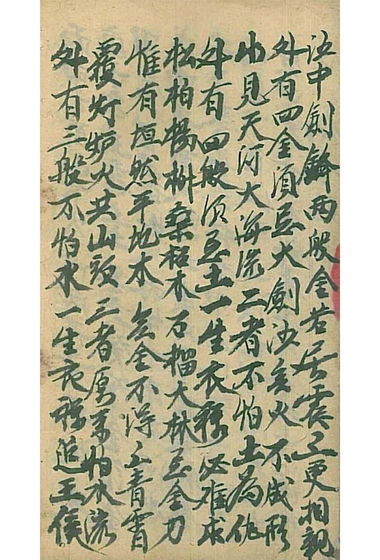 沙中劍鋒两般金若居震上更相親
外有四金須忌火劍沙无火不成形
水見天河大海流二者不怕土為仇
外有四般須忌土一生衣祿必难求
松柏楊柳桑柘木石榴大林忌金刀
惟有坦然平地木无金不得上青霄
覆灯炉火共山頭三者原来怕水流
外有三般不怕水一生衣祿近王侯